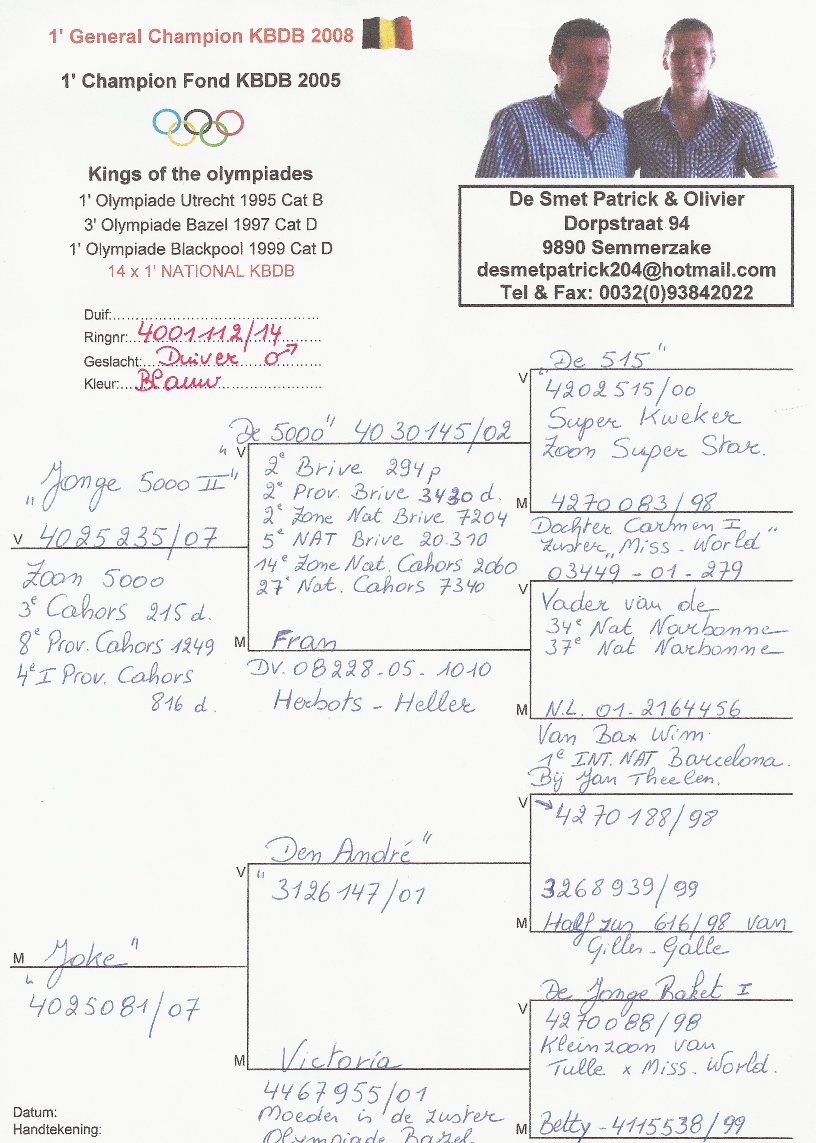 1' General Champion KBDB 2008
1' Champion Fond KBDB 2005
Kings of the olympiades
1' Olympiade Utrecht 1995 Cat B
3' Olympiade Bazel 1997 Cat D
1' Olympiade Blackpool 1999 Cat D
14 x 1' NATIONAL KBDB
De Smet Patrick & Olivier
Dorpstraat 94
9890 Semmerzake
desmetpatrick204@hotmail.com
Tel & Fax: 0032(0)93842022
Duif:
Ringnr: 4001112/14
Geslacht: Duiver ♂
Kleur: Blauw
"Jonge 5000 II"
V 4025235/07
Zoon 5000
3e Cahors 215 d.
8e Prov. Cahors 1249
4e I Prov. Cahors
816 d.
"De 5000" 4030145/02
V
2e Brive 294 p
2e Prov. Brive 3430 d.
2e Zone Nat Brive 7204
5e NAT Brive 20.310
14e Zone Nat. Cahors 2060
27e Nat. Cahors 7340
M Fran
DV. 08228-05-1010
Herbots - Heller
"De 515"
V
4202515/00
Super Kweker
Zoon Super Star.
M 4270083/98
Dochter Carmen I
zuster "Miss-World"
03449-01-279
V
Vader van de
34e Nat Narbonne
37e Nat Narbonne
M N.L. 01-2164456
Van Bax Wim.
1e INT. NAT Barcelona.
Bij Jan Theelen.
M "Joke"
4025081/07
"Den André"
V
3126147/01
M Victoria
4467955/01
Moeder is de zuster
Olympiade Bazel.
V
4270188/98
3268939/99
M Half zus 616/98 van
Gilles-Galle
De Jonge Raket I
V
4270088/98
Kleinzoon van
Tulle x Miss-World.
M Betty - 4115538/99
Datum:
Handtekening: